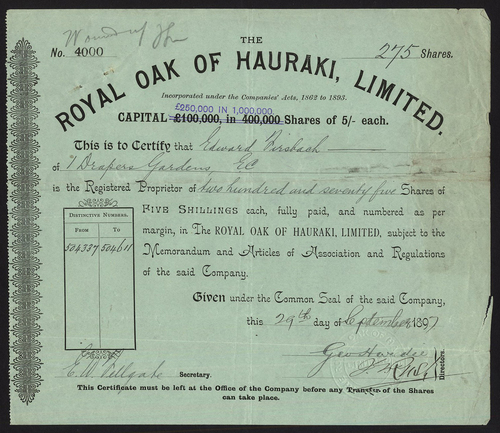 THE
No. 4000
275 Shares.
ROYAL OAK OF HAURAKI, LIMITED.
Incorporated under the Companies' Acts, 1862 to 1893.
£250,000 IN 1,000,000
CAPITAL £100,000, in 400,000 Shares of 5/- each.
This is to Certify that Edward Birsbach
of 7 Drapers Gardens, EC
is the Registered Proprietor of two hundred and seventy five Shares of
FIVE SHILLINGS each, fully paid, and numbered as per
margin, in The ROYAL OAK OF HAURAKI, LIMITED, subject to the
Memorandum and Articles of Association and Regulations
of the said Company.
DISTINCTIVE NUMBERS.
FROM TO
504337 504611
Given under the Common Seal of the said Company,
this 29th day of September 1897
Directors.
Secretary.
This Certificate must be left at the Office of the Company before any Transfer of the Shares
can take place.